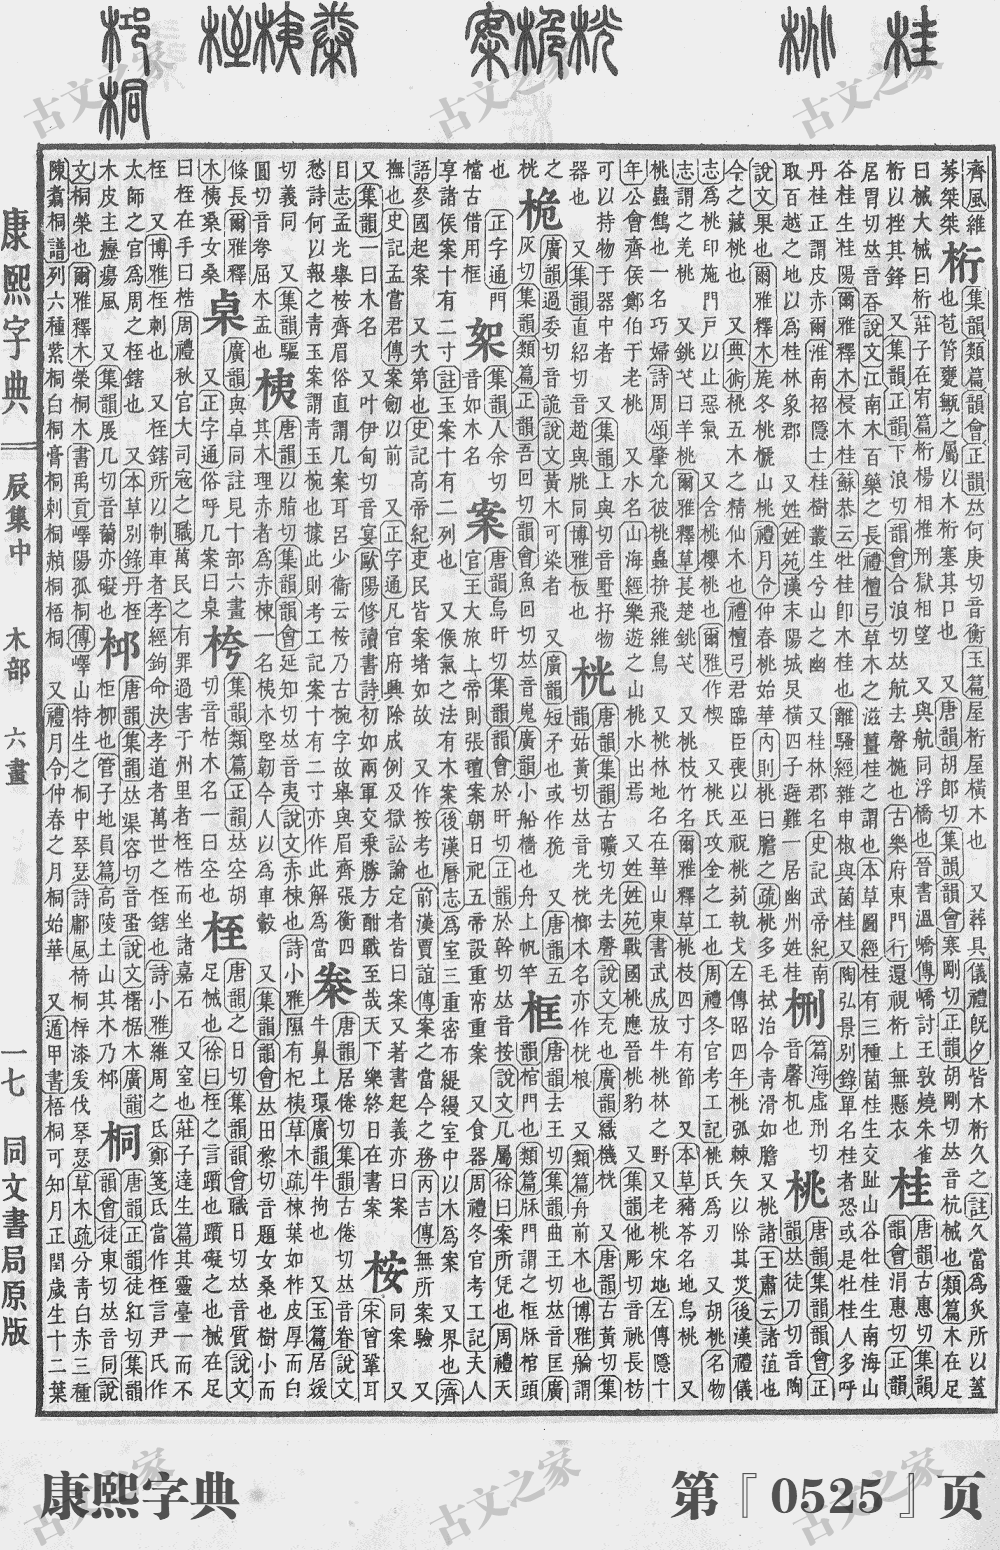 齊風維 桁 集韻類篇韻會正韻𠀤何庚切音衡玉篇屋桁屋橫木也 又葬具儀禮旣夕皆木桁久之註久當爲灸所以蓋
莠桀桀 也苞筲甕甒之屬以木桁塞其口也 又唐韻胡郎切集韻韻會寒剛切正韻胡剛切𠀤音杭械也類篇木在足
曰械大械曰桁莊子在宥篇桁楊相推刑獄相望 又與航同浮橋也晉書溫嶠傳嶠討王敦燒朱雀 桂 唐韻古惠切集韻
桁以挫其鋒 又集韻正韻下浪切韻會合浪切𠀤航去聲椸也古樂府東門行還視桁上無懸衣 韻會涓惠切正韻
居胃切𠀤音昋說文江南木百藥之長禮檀弓草木之滋薑桂之謂也本草圖經桂有三種菌桂生交趾山谷牡桂生南海山
谷桂生桂陽爾雅釋木梫木桂蘇恭云牡桂卽木桂也離騷經雜申椒與菌桂又陶弘景別錄單名桂者恐或是牡桂人多呼
丹桂正謂皮赤爾淮南招隱士桂樹叢生兮山之幽 又桂林郡名史記武帝紀南 栵 篇海虛刑切 桃 唐韻集韻韻會正
取百越之地以爲桂林象郡 又姓姓苑漢末陽城炅橫四子避難一居幽州姓桂 音馨杌也 韻𠀤徒刀切音陶
說文果也爾雅釋木旄冬桃榹山桃禮月令仲春桃始華內則桃曰膽之疏桃多毛拭治令靑滑如膽又桃諸王肅云諸菹也
令之藏桃也 又典術桃五木之精仙木也禮檀弓君臨臣喪以巫祝桃茢執戈左傳昭四年桃弧棘矢以除其災後漢禮儀
志爲桃印施門戸以止惡氣 又含桃櫻桃也爾雅作楔 又桃氏攻金之工也周禮冬官考工記桃氏爲刃 又胡桃名物
志謂之羌桃 又銚芅曰羊桃爾雅釋草萇楚銚芅 又桃枝竹名爾雅釋草桃枝四寸有節 又本草豬苓名地烏桃 又
桃蟲鷦也一名巧婦詩周頌肇允彼桃蟲拚飛維鳥 又桃林地名在華山東書武成放牛桃林之野又老桃宋地左傳隱十
年公會齊侯鄭伯于老桃 又水名山海經樂遊之山桃水出焉 又姓姓苑戰國桃應晉桃豹 又集韻他彫切音祧長枋
可以持物于器中者 又集韻上與切音墅抒物 桄 唐韻集韻古曠切光去聲說文充也廣韻織機桄 又唐韻古黃切集
器也 又集韻直紹切音趙與朓同博雅板也 韻姑黃切𠀤音光桄榔木名亦作桄桹 又類篇舟前木也博雅艙謂
之 桅 廣韻過委切音詭說文黃木可染者 又廣韻短矛也或作㧪 又唐韻五 框 唐韻去王切集韻曲王切𠀤音匡廣
桄 灰切集韻類篇正韻吾回切韻會魚回切𠀤音嵬廣韻小船檣也舟上帆竿 韻棺門也類篇牀門謂之框牀棺頭
也 正字通門 案 唐韻烏旰切集韻韻會於旰切正韻於幹切𠀤音按說文几屬徐曰案所凭也周禮天
檔古借用框 絮 集韻人余切 官王大旅上帝則張氊案朝日祀五帝設重帟重案 又食器周禮冬官考工記夫人
享諸侯案十有二寸註玉案十有二列也 又候氣之法有木案後漢曆志爲室三重密布緹縵室中以木爲案 又界也齊
語參國起案 又次第也史記高帝紀吏民皆案堵如故 又作按考也前漢賈誼傳案之當今之務丙吉傳無所案驗 又
撫也史記孟嘗君傳案劒以前 又正字通凡官府興除成例及獄訟論定者皆曰案又著書起義亦曰案 桉 同案 又
又集韻一曰木名 又叶伊甸切音宴歐陽修讀書詩初如兩軍交乗勝方酣戰至哉天下樂終日在書案 宋曾鞏耳
目志孟光舉桉齊眉俗直謂几案耳呂少衞云桉乃古椀字故舉與眉齊張衡四 桊 唐韻居倦切集韻古倦切𠀤音眷說文
愁詩何以報之靑玉案謂靑玉椀也據此則考工記案十有二寸亦作此解爲當 牛鼻上環廣韻牛拘也 又玉篇居媛
切義同 又集韻驅 桋 唐韻以脂切集韻韻會延知切𠀤音夷說文赤楝也詩小雅隰有杞桋草木疏楝葉如柞皮厚而白
圓切音弮屈木盂也 其木理赤者爲赤楝一名桋木堅韌今人以爲車轂 又集韻韻會𠀤田黎切音題女桑也樹小而
條長爾雅釋 桌 廣韻與卓同註見十部六畫 桍 集韻類篇正韻𠀤空胡 桎 唐韻之日切集韻韻會職日切𠀤音質說文
木桋桑女桑 又正字通俗呼几案曰桌 切音枯木名一曰空也 足械也徐曰桎之言躓也躓礙之也械在足
曰桎在手曰梏周禮秋官大司寇之職萬民之有罪過害于州里者桎梏而坐諸嘉石 又窒也莊子達生篇其靈臺一而不
桎 又博雅桎刺也 又桎鎋所以制車者孝經鉤命決孝道者萬世之桎鎋也詩小雅維周之氐鄭箋氐當作桎言尹氏作
太師之官爲周之桎鎋也 又本草別錄丹桎 桏 唐韻集韻𠀤渠容切音蛩說文㯕椐木廣韻 桐 唐韻正韻徒紅切集韻
木皮主癧瘍風 又集韻展几切音黹亦礙也 柜桏也管子地員篇高陵土山其木乃桏 韻會徒東切𠀤音同說
文桐榮也爾雅釋木榮桐木書禹貢嶧陽孤桐傳嶧山特生之桐中琴瑟詩鄘風椅桐梓漆爰伐琴瑟草木疏分靑白赤三種
陳翥桐譜列六種紫桐白桐膏桐刺桐赬桐梧桐 又禮月令仲春之月桐始華 又遁甲書梧桐可知月正閏歲生十二葉
康熙字典 辰集中 木部 六畫 一七 同文書局原版
古文之家
古文之家
古文之家
康熙字典
第『0525』页
古文之家
古文之家
古文之家